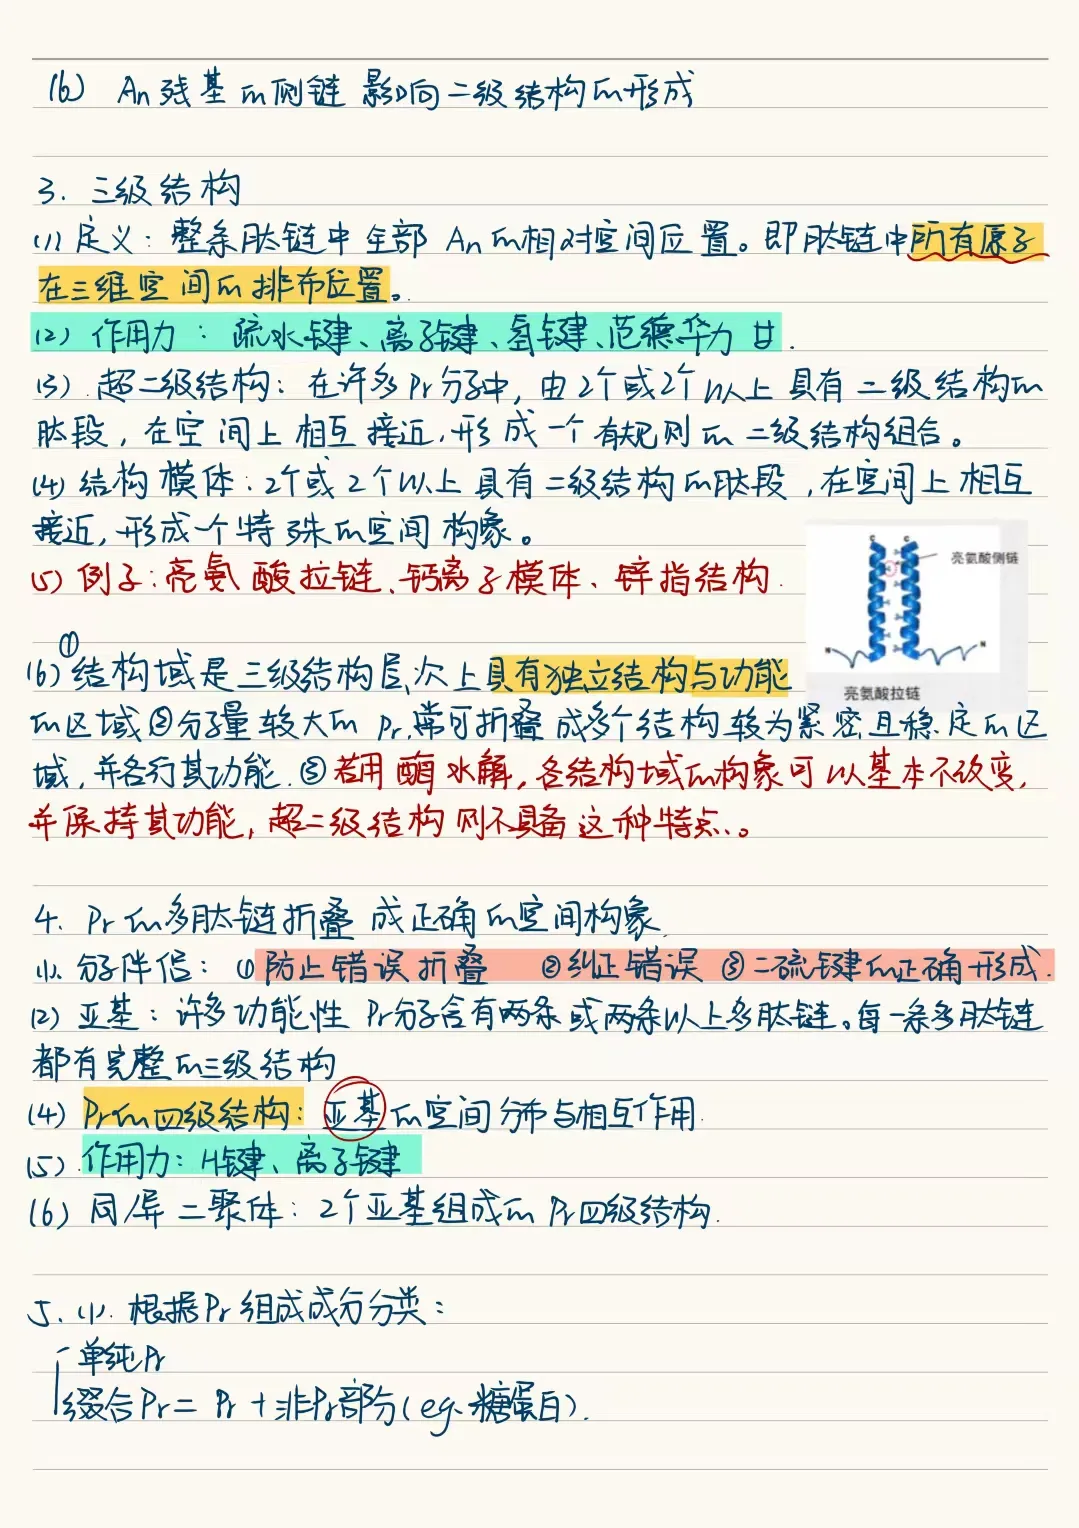 (6) An残基的侧链影响二级结构的形成
3. 三级结构
(1) 定义：整条肽链中全部An的相对空间位置。即肽链中所有原子
在三维空间的排布位置。
(2) 作用力：疏水键、离子键、氢键、范德华力
(3). 超二级结构：在许多Pr分子中，由2个或2个以上具有二级结构的
肽段，在空间上相互接近，形成一个有规则的二级结构组合。
(4) 结构模体：2个或2个以上具有二级结构的肽段，在空间上相互
接近，形成一个特殊的空间构象。
(5) 例子：亮氨酸拉链、钙离子模体、锌指结构.
C C
亮氨酸侧链
N N
亮氨酸拉链
(6) ①结构域是三级结构层次上具有独立结构与功能
的区域②分子量较大的Pr,常可折叠成多个结构较为紧密且稳定的区
域，并各行其功能.③若用酶水解，各结构域的构象可以基本不改变，
并保持其功能，超二级结构则不具备这种特点.。
4. Pr的多肽链折叠成正确的空间构象.
(1). 分子伴侣：①防止错误折叠 ②纠正错误 ③二硫键的正确形成.
(2) 亚基：许多功能性Pr分子含有两条或两条以上多肽链。每一条多肽链
都有完整的三级结构
(4) Pr的四级结构：亚基的空间分布与相互作用.
(5). 作用力：H键、离子键
(6) 同/异二聚体：2个亚基组成的Pr四级结构.
5. (1). 根据Pr组成成分分类：
单纯Pr
缀合Pr = Pr + 非Pr部分(eg.糖蛋白).